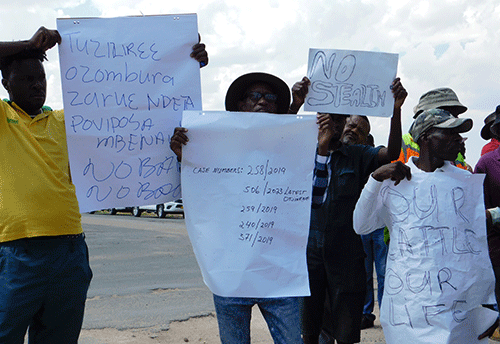 TUZILIREE
OZOMBURA
ZARUE NDJA
POVIPOSA
MBENA
NO BA
NO BA
CASE NUMBERS: 258/2019
506/2023 LATEST
259/2019
240/2019
371/2019
NO
STEALIN
OUR
CATTLE
OUR
LIFE